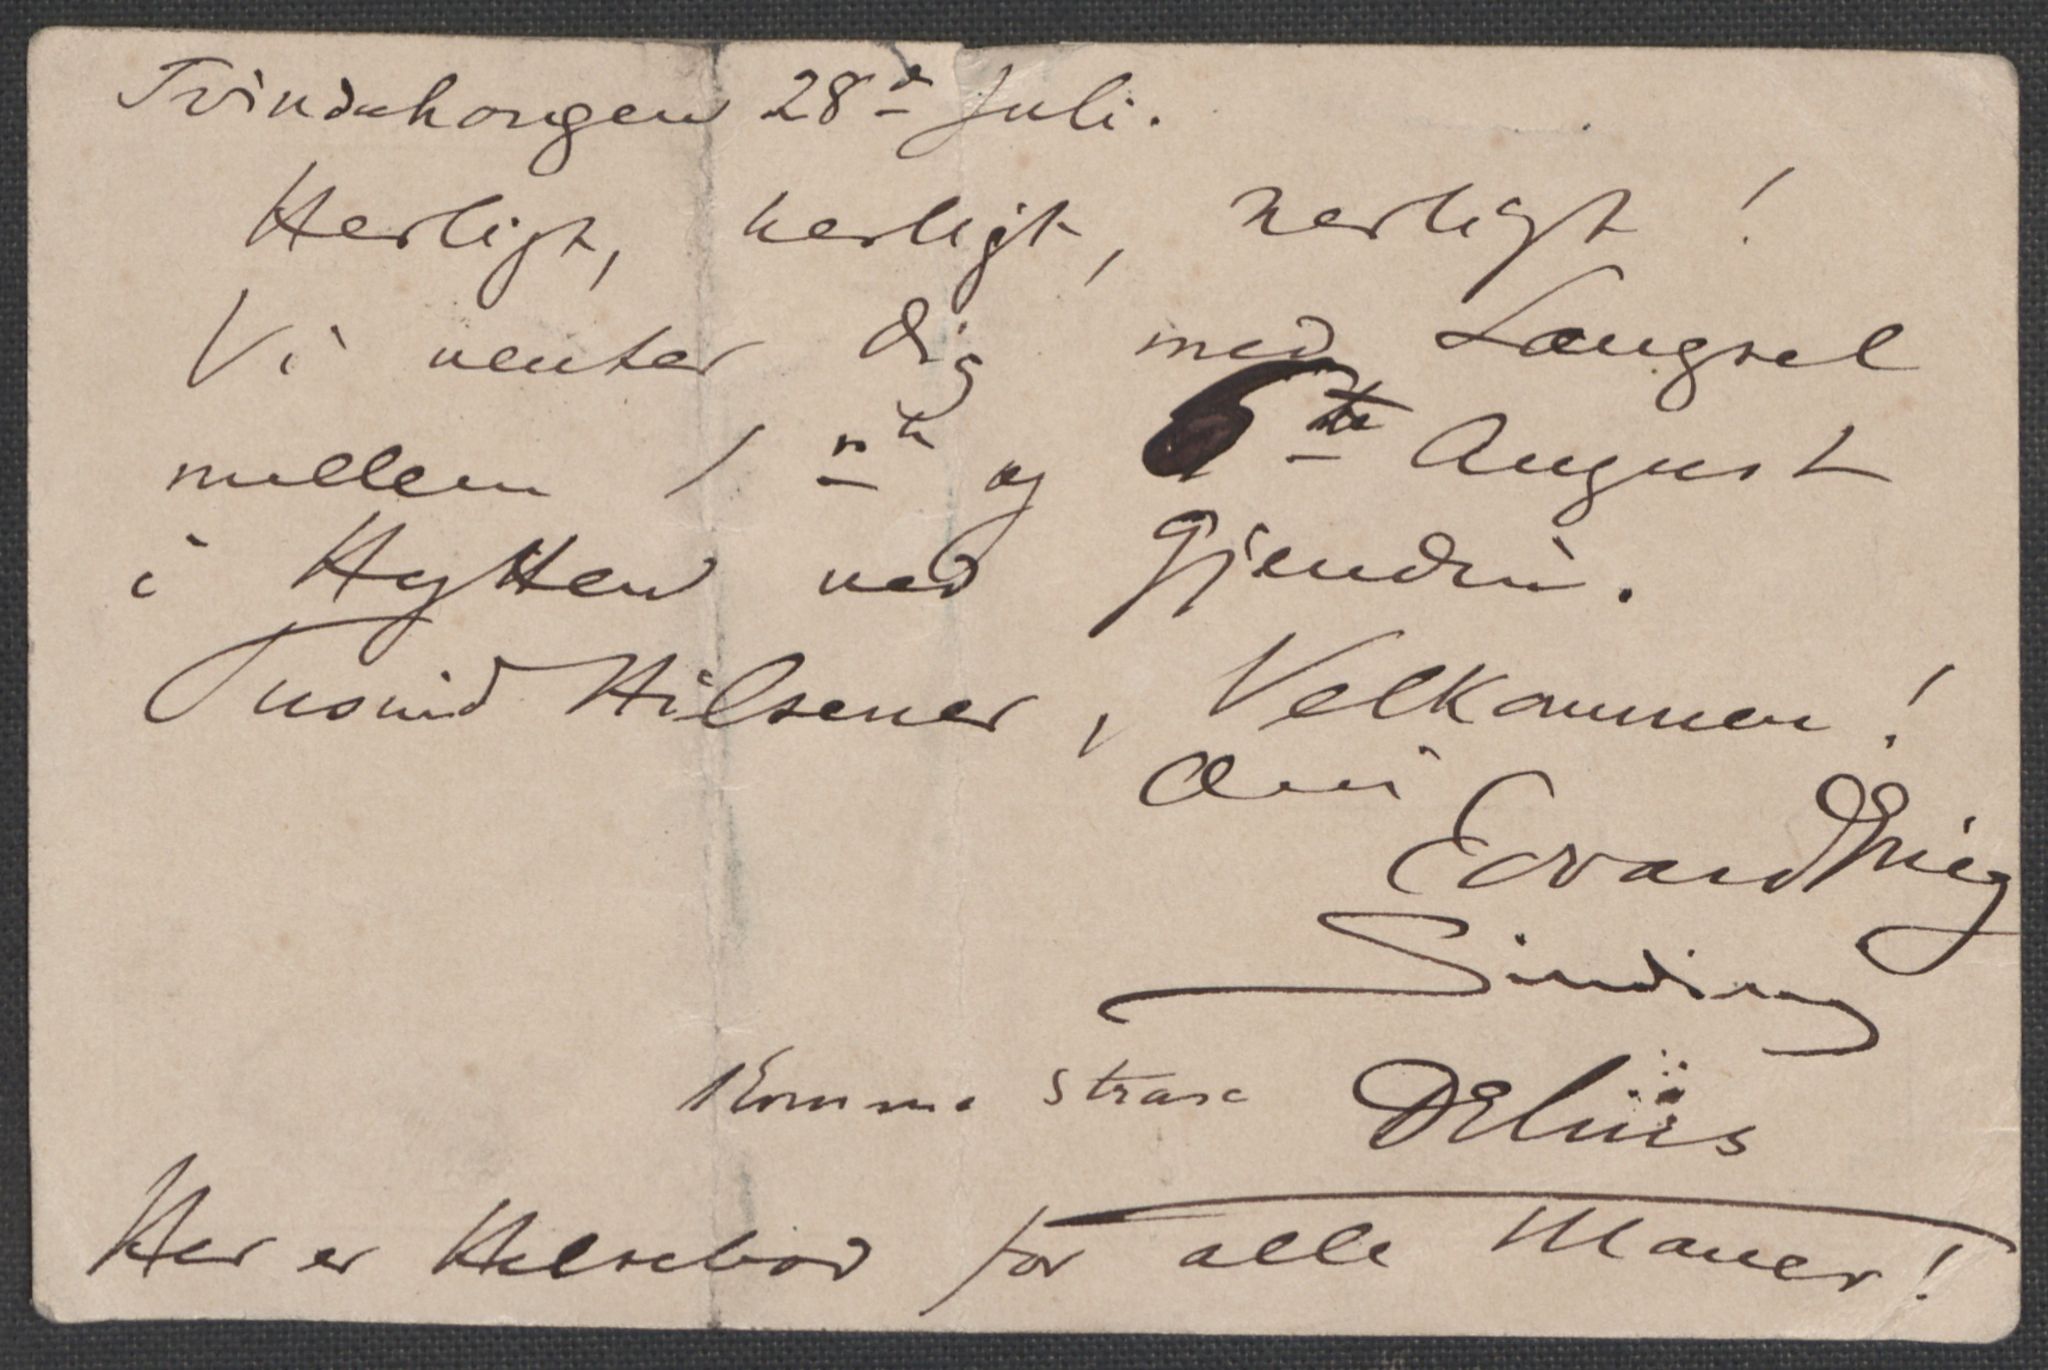 Tvindehougen 28de Juli.
Herligt, herligt, herligt!
Vi venter dig med Længsel
mellem 1ste og 6te August
i Hytten ved Gjendin.
Tusind Hilsener, Velkommen!
Din
Edvard Grieg
Sinding
Komme strax Delius
Her er Helsebod for alle Maver!